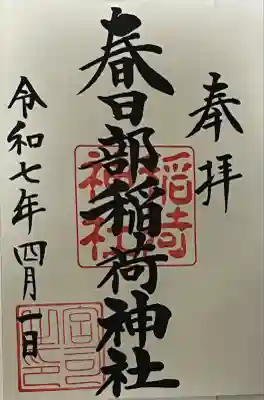 奉拝
春日部稲荷神社
稲荷神社
令和七年四月一日